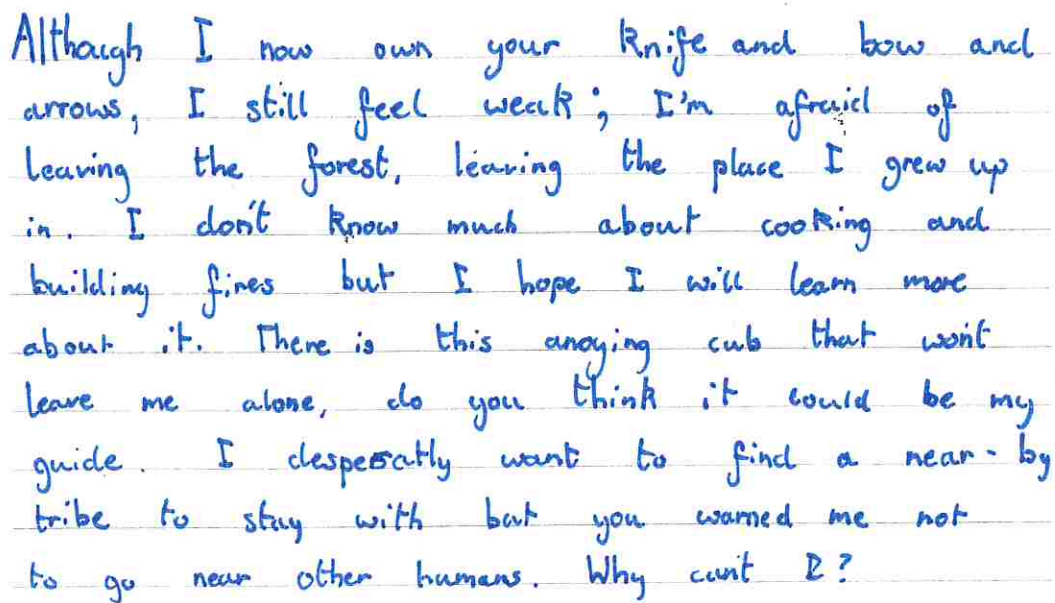 Although I now own your knife and bow and
arrows, I still feel weak; I'm afraid of
leaving the forest, leaving the place I grew up
in. I don't know much about cooking and
building fires but I hope I will learn more
about it. There is this anoying cub that won't
leave me alone, do you think it could be my
guide. I desperatly want to find a near-by
tribe to stay with but you warned me not
to go near other humans. Why can't I?